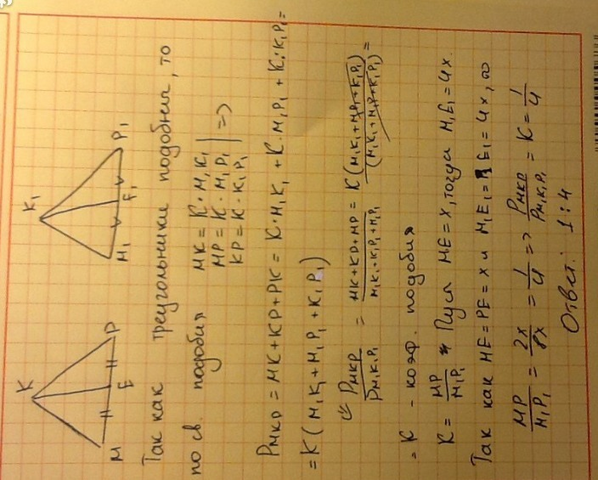 K K₁
M E P M₁ E₁ P₁
Так как треугольники подобния, то
по св. подобия MK = K · M₁K₁
MP = K · M₁P₁ | =>
KP = K · K₁P₁
P_MKP = MK + KP + PK = K · M₁K₁ + K · M₁P₁ + K · K₁P₁ =
= K (M₁K₁ + M₁P₁ + K₁P₁)
P_MKP / P_M₁K₁P₁ = MK + KP + MP / M₁K₁ + K₁P₁ + M₁P₁ = K (M₁K₁ + M₁P₁ + K₁P₁) / (M₁K₁ + M₁P₁ + K₁P₁) =
= K - коэф. подобия
K = MP / M₁P₁ Пуся ME = x, тогда M₁E₁ = 4x.
Так как ME = PE = x и M₁E₁ = P₁E₁ = 4x, то
MP / M₁P₁ = 2x / 8x = 1 / 4 => P_MKP / P_M₁K₁P₁ = K = 1 / 4
Ответ: 1:4